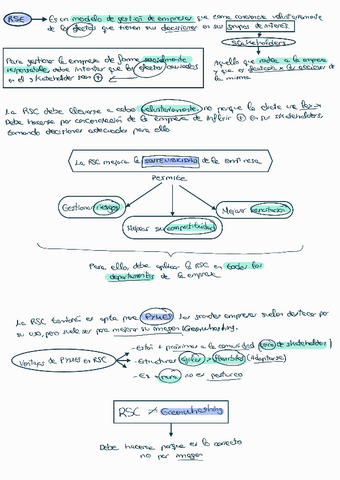 RSE → Es un modelo de gestión de empresas que son conscientes voluntariamente
de los efectos que tienen sus decisiones en sus grupos de interés.
Stakeholders
Para gestionar la empresa de forma socialmente
responsable, debe intentar que los efectos causados
en el stakeholder sean +
Aquello que rodea a la empresa
y que es afectado x las acciones de
la misma
La RSC debe llevarse a cabo voluntariamente, no porque lo dicte una ley →
Debe hacerse por concienciación de la empresa de influir + en sus stakeholders,
tomando decisiones adecuadas para ello.
La RSC mejora la SOSTENIBILIDAD de la empresa
Permite
Gestionar riesgos
Mejorar su competitividad
Mejorar reputación
Para ello, debe aplicar la RSC en todos los
departamentos de la empresa
La RSC también es apta para PYMES. Las grandes empresas suelen destacar por
su uso, pero suele ser para mejorar su imagen (Greenwashing).
Ventajas de PYMES en RSC
- Están + próximas a la comunidad (zona de stakeholder)
- Estructuras ágiles y flexibles (Adaptarse)
- Es + real, no es postureo
RSC ≠ Greenwashing
Debe hacerse porque es lo correcto
no por imagen